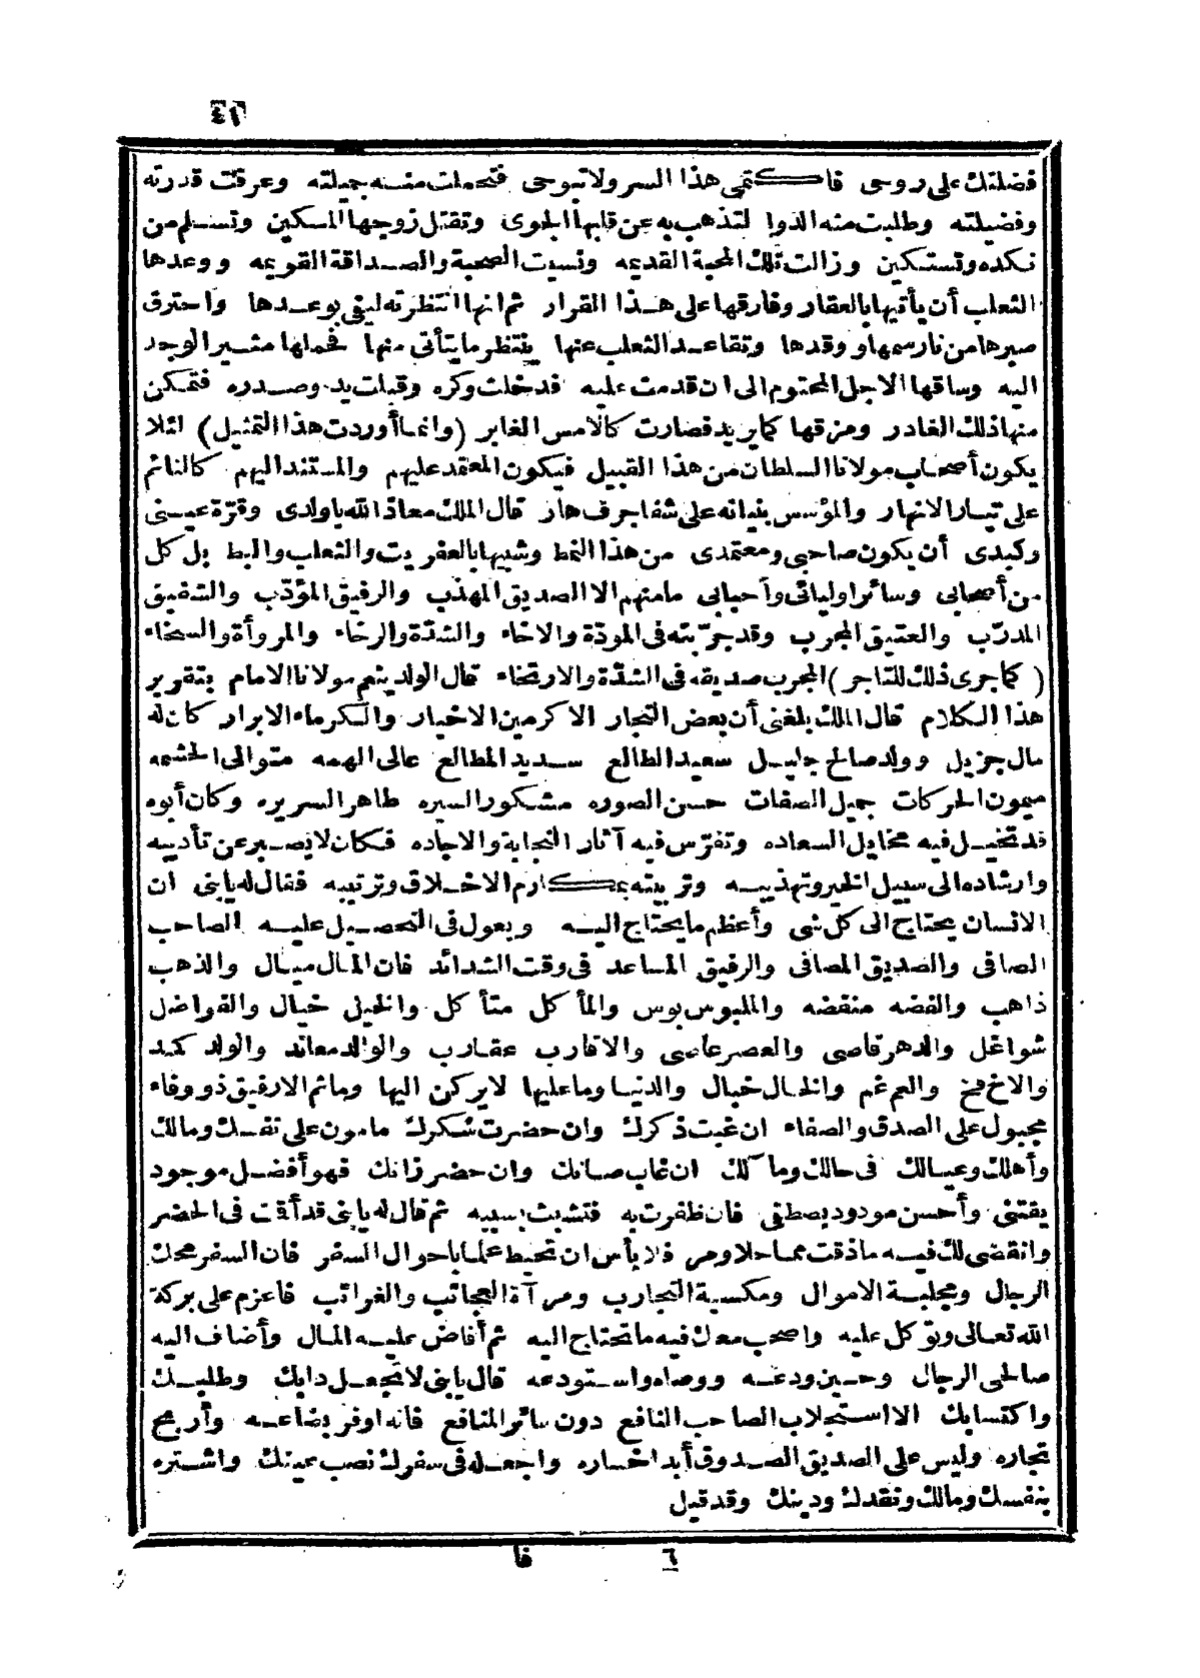 ٤١
فضلتك على روحى فاكتمى هذا السر ولا تبوحى فتحملت منه جميلته وعرفت قدرته
وفضيلته وطلبت منه الدوا لتذهب به عن قلبها الجوى وتقتل زوجها المسكين وتسلم من
نكده وتستكين وزالت تلك المحبة القديمه ونسيت الصحبة والصداقة القويمه ووعدها
الثعلب أن يأتيها بالعقار وفارقها على هذا القرار ثم انها انتظرته ليفى بوعدها واحترق
صبرها من نار سمها ووقدها وتقاعد الثعلب عنها ينتظر ما يتأتى منها فحملها مشير الوجد
اليه وساقها الاجل المحتوم الى ان قدمت عليه فدخلت وكره وقبلت يده وصدره فتمكن
منها ذلك الغادر ومزقها كما يريد فصارت كالامس الغابر (وانما أوردت هذا التمثيل) لئلا
يكون أصحاب مولانا السلطان من هذا القبيل فيكون المعتقد عليهم والمستند اليهم كالنائم
على تيار الانهار والمؤسس بنيانه على شفا جرف هار قال الملك معاذ الله يا ولدى وقرّة عينى
وكبدى أن يكون صاحبى ومعتمدى من هذا النمط وشبيها بالعفريت والثعلب والبط بل كل
من أصحابى وسائر اوليائى وأحبابى ما منهم الا الصديق المهذب والرفيق المؤدّب والشفيق
المدرّب والعتيق المجرب وقد جرّبته فى المودّة والاخاء والشدّة والرخاء والمروأة والسخاء
(كما جرى ذلك للتاجر) المجرب صديقه فى الشدّة والارتخاء قال الولد ينعم مولانا الامام بتقرير
هذا الكلام قال الملك بلغنى أن بعض التجار الاكرمين الاخيار والكرماء الابرار كان له
مال جزيل وولد صالح جليل سعيد الطالع سديد المطالع عالى الهمه متوالى الحشمه
ميمون الحركات جميل الصفات حسن الصوره مشكور السيره طاهر السريره وكان أبوه
قد تخيل فيه مخايل السعاده وتفرّس فيه آثار النجابة والاجاده فكان لا يصبر عن تأديبه
وارشاده الى سبيل الخير وتهذيبه وتربيته بمكارم الاخلاق وترتيبه فقال له يابنى ان
الانسان يحتاج الى كل شى وأعظم ما يحتاج اليه ويعول فى التحصيل عليه الصاحب
الصافى والصديق المصافى والرفيق المساعد فى وقت الشدائد فان المال ميال والذهب
ذاهب والفضه منفضه والملبوس بوس والمأكل متأكل والخيل خيال والفواضل
شواغل والدهر قاصى والعصر عاصى والاقارب عقارب والوالد معاند والولد كمد
والاخ فخ والعم غم والخال خبال والدنيا وما عليها لا يركن اليها وما ثم الا رفيق ذو وفاء
مجبول على الصدق والصفاء ان غبت ذكرك وان حضرت شكرك مامون على نفسك ومالك
وأهلك وعيالك فى حالك ومآلك ان غاب صانك وان حضر زانك فهو أفضل موجود
يقتنى وأحسن مودود يصطفى فان ظفرت به فتشبث بسببه ثم قال له يابنى قد أقمت فى الحضر
وانقضى لك فيه ماذقت مما حلا ومر فلا بأس ان تحيط علما باحوال السفر فان السفر محك
الرجال ومجلبة الاموال ومكسبة التجارب ومرآة العجائب والغرائب فاعزم على بركة
الله تعالى وتوكل عليه واصحب معك فيه ما تحتاج اليه ثم أفاض عليه المال وأضاف اليه
صالحى الرجال وحين ودعه ووصاه واستودعه قال يابنى لا تجعل دابك وطلبك
واكتسابك الا استجلاب الصاحب النافع دون سائر المنافع فانه اوفر بضاعه وأربح
تجاره وليس على الصديق الصدوق أبدا خساره واجعله فى سفرك نصب عينك واشتره
بنفسك ومالك ونقدك ودينك وقد قيل
٦ فا